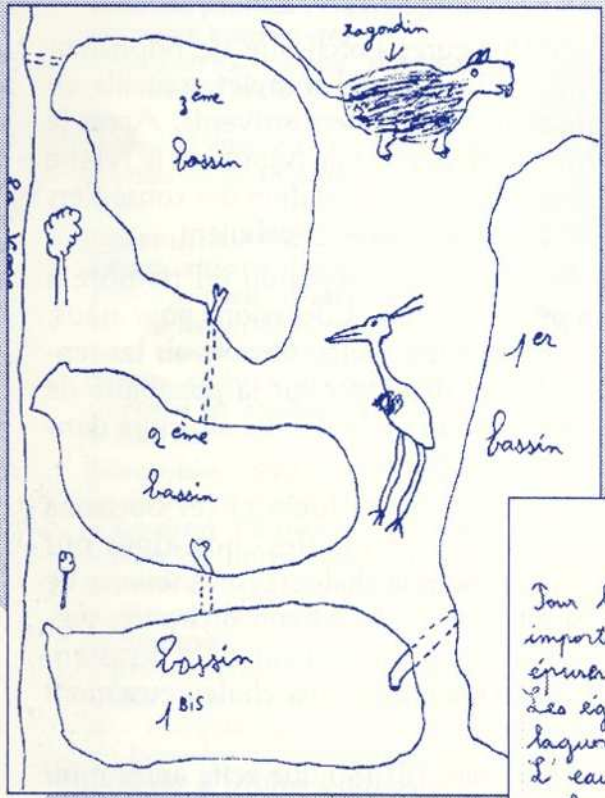 ragondin
3ème
bassin
1er
bassin
2ème
bassin
bassin
1 BIS
Pour l
import
épurer
Les ég
lagu
L'eau